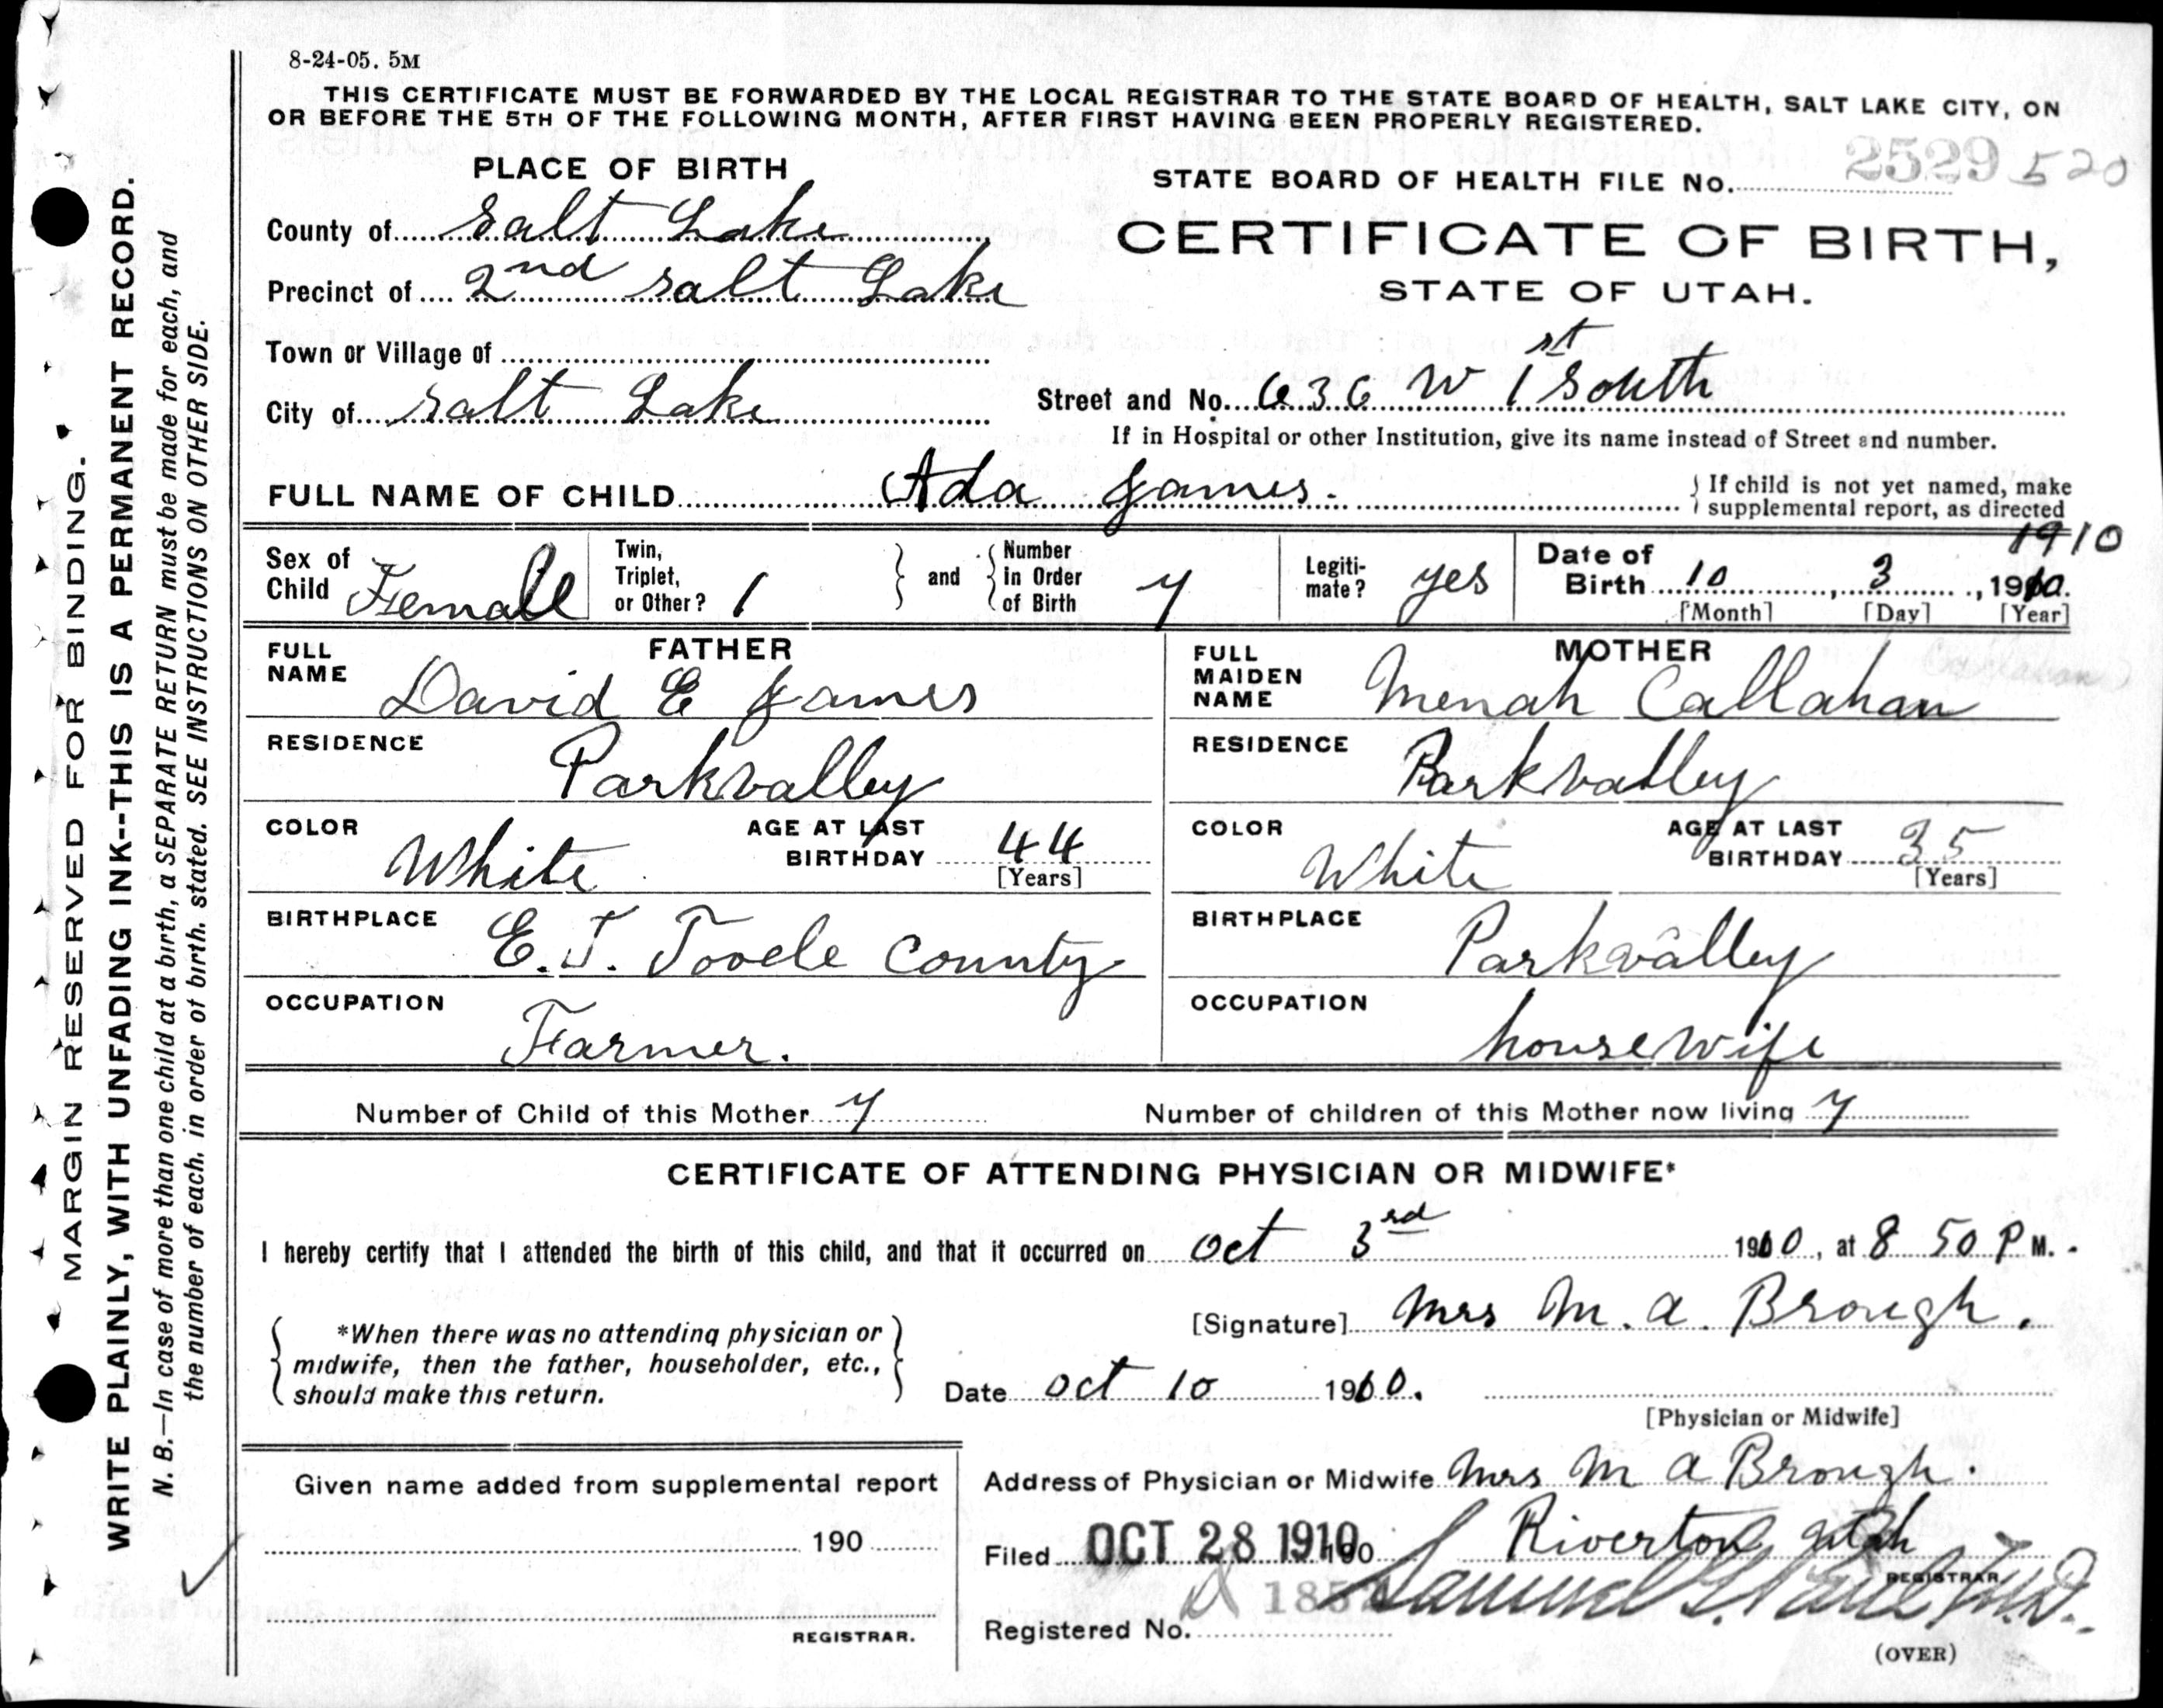 8-24-05. 5M
THIS CERTIFICATE MUST BE FORWARDED BY THE LOCAL REGISTRAR TO THE STATE BOARD OF HEALTH, SALT LAKE CITY, ON
OR BEFORE THE 5TH OF THE FOLLOWING MONTH, AFTER FIRST HAVING BEEN PROPERLY REGISTERED.
PLACE OF BIRTH
STATE BOARD OF HEALTH FILE No. 2529 520
County of Salt Lake
CERTIFICATE OF BIRTH,
STATE OF UTAH.
Precinct of 2nd Salt Lake
Town or Village of
City of Salt Lake
Street and No. 636 W 1st South
If in Hospital or other Institution, give its name instead of Street and number.
FULL NAME OF CHILD Ada James.
If child is not yet named, make
supplemental report, as directed
Sex of Child Female
Twin, Triplet, or Other? 1
and Number in Order of Birth 7
Legiti- mate? yes
Date of Birth 10, 3, 1910. 1910
[Month] [Day] [Year]
FATHER
FULL NAME David E James
RESIDENCE Parkvalley
COLOR White
AGE AT LAST BIRTHDAY 44
[Years]
BIRTHPLACE E. T. Tooele County
OCCUPATION Farmer.
MOTHER
FULL MAIDEN NAME Menah Callahan
(Callahan)
RESIDENCE Parkvalley
COLOR White
AGE AT LAST BIRTHDAY 35
[Years]
BIRTHPLACE Parkvalley
OCCUPATION housewife
Number of Child of this Mother 7
Number of children of this Mother now living 7
CERTIFICATE OF ATTENDING PHYSICIAN OR MIDWIFE*
I hereby certify that I attended the birth of this child, and that it occurred on Oct 3rd 1910, at 8 50 P M.
*When there was no attending physician or
midwife, then the father, householder, etc.,
should make this return.
[Signature] Mrs M. A. Brough.
Date Oct 10 1910.
[Physician or Midwife]
Given name added from supplemental report
190
REGISTRAR.
Address of Physician or Midwife Mrs M A Brough.
Riverton Utah
Filed OCT 28 1910 190
REGISTRAR
Samuel G. Paul M.D.
Registered No.
(OVER)
MARGIN RESERVED FOR BINDING.
WRITE PLAINLY, WITH UNFADING INK--THIS IS A PERMANENT RECORD.
N. B.—In case of more than one child at a birth, a SEPARATE RETURN must be made for each, and
the number of each, in order of birth, stated. SEE INSTRUCTIONS ON OTHER SIDE.